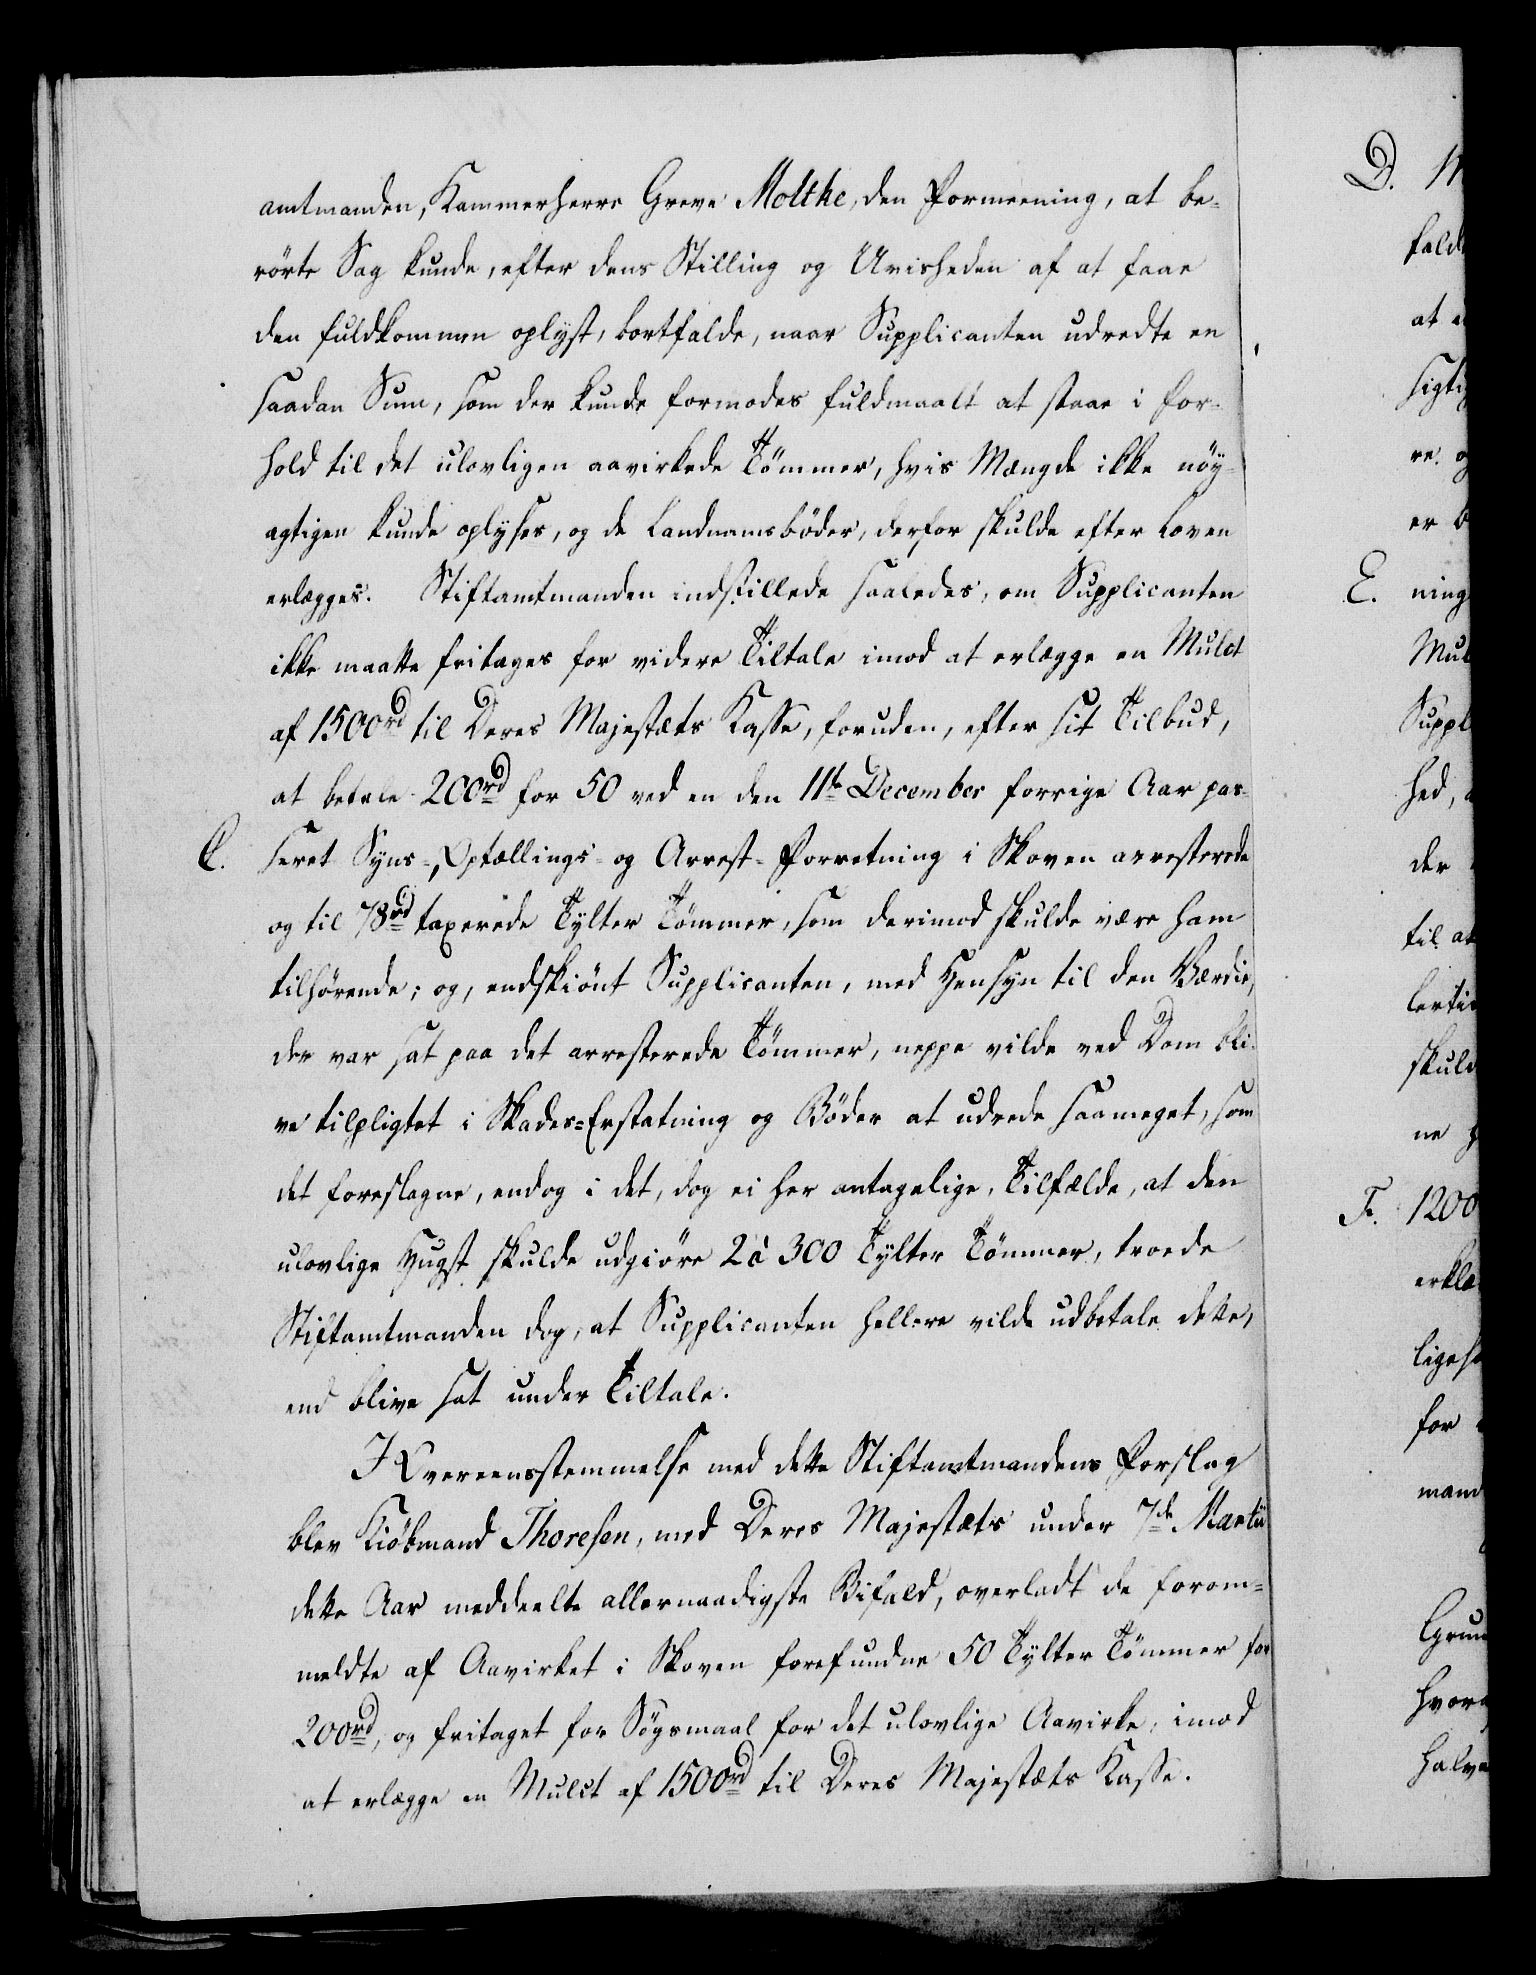 amtmanden, Kammerherre Greve Molthe, den Formeening, at be-
rörte Sag kunde, efter dens Stilling og Uvisheden af at faae
den fuldkommen oplyst, bortfalde, naar Supplicanten udredte en
saadan Sum, som der kunde formodes fuldmaalt at staae i for-
hold til det ulovligen aavirkede Tömmer, hvis Mængde ikke nöy-
agtigen kunde oplyses, og de Landnamsböder, derfor skulde efter Loven
erlægges. Stiftamtmanden indstillede saaledes, om Supplicanten
ikke maatte fritages for videre Tiltale imod at erlægge en Mulct
af 1500rd til Deres Majestæts Kasse, foruden, efter sit Tilbud,
at betale 200rd for 50 ved en den 11te December forrige Aar pas-
C. seret Syns-, Optællings- og Arrest-Forretning i Skoven arresterede
og til 78rd taxerede Tylter Tömmer, som derimod skulde være ham
tilhörende; og, endskiönt Supplicanten, med Hensyn til den Værdie,
der var sat paa det arresterede Tömmer, neppe vilde ved Dom bli-
ve tilpligtet i Skades-Erstatning og Böder at udrede saameget, som
det foreslagne, endog i det, dog ei her antagelige, Tilfælde, at den
ulovlige Hugst skulde udgiöre 2 à 300 Tylter Tömmer, troede
Stiftamtmanden dog, at Supplicanten hellere vilde udbetale dette,
end blive sat under Tiltale.
I Overeensstemmelse med dette Stiftamtmandens Forslag
blev Kiöbmand Thoresen, med Deres Majestæts under 7de Martii
dette Aar meddeelte allernaadigste Bifald, overladt de forom-
meldte af Aavirket i Skoven forefundne 50 Tylter Tömmer for
200rd, og fritaget for Sögsmaal for det ulovlige Aavirke, imod
at erlægge en Mulct af 1500rd til Deres Majestæts Kasse.
D.
at
er
E. ning
der
til at
F. 1200
for